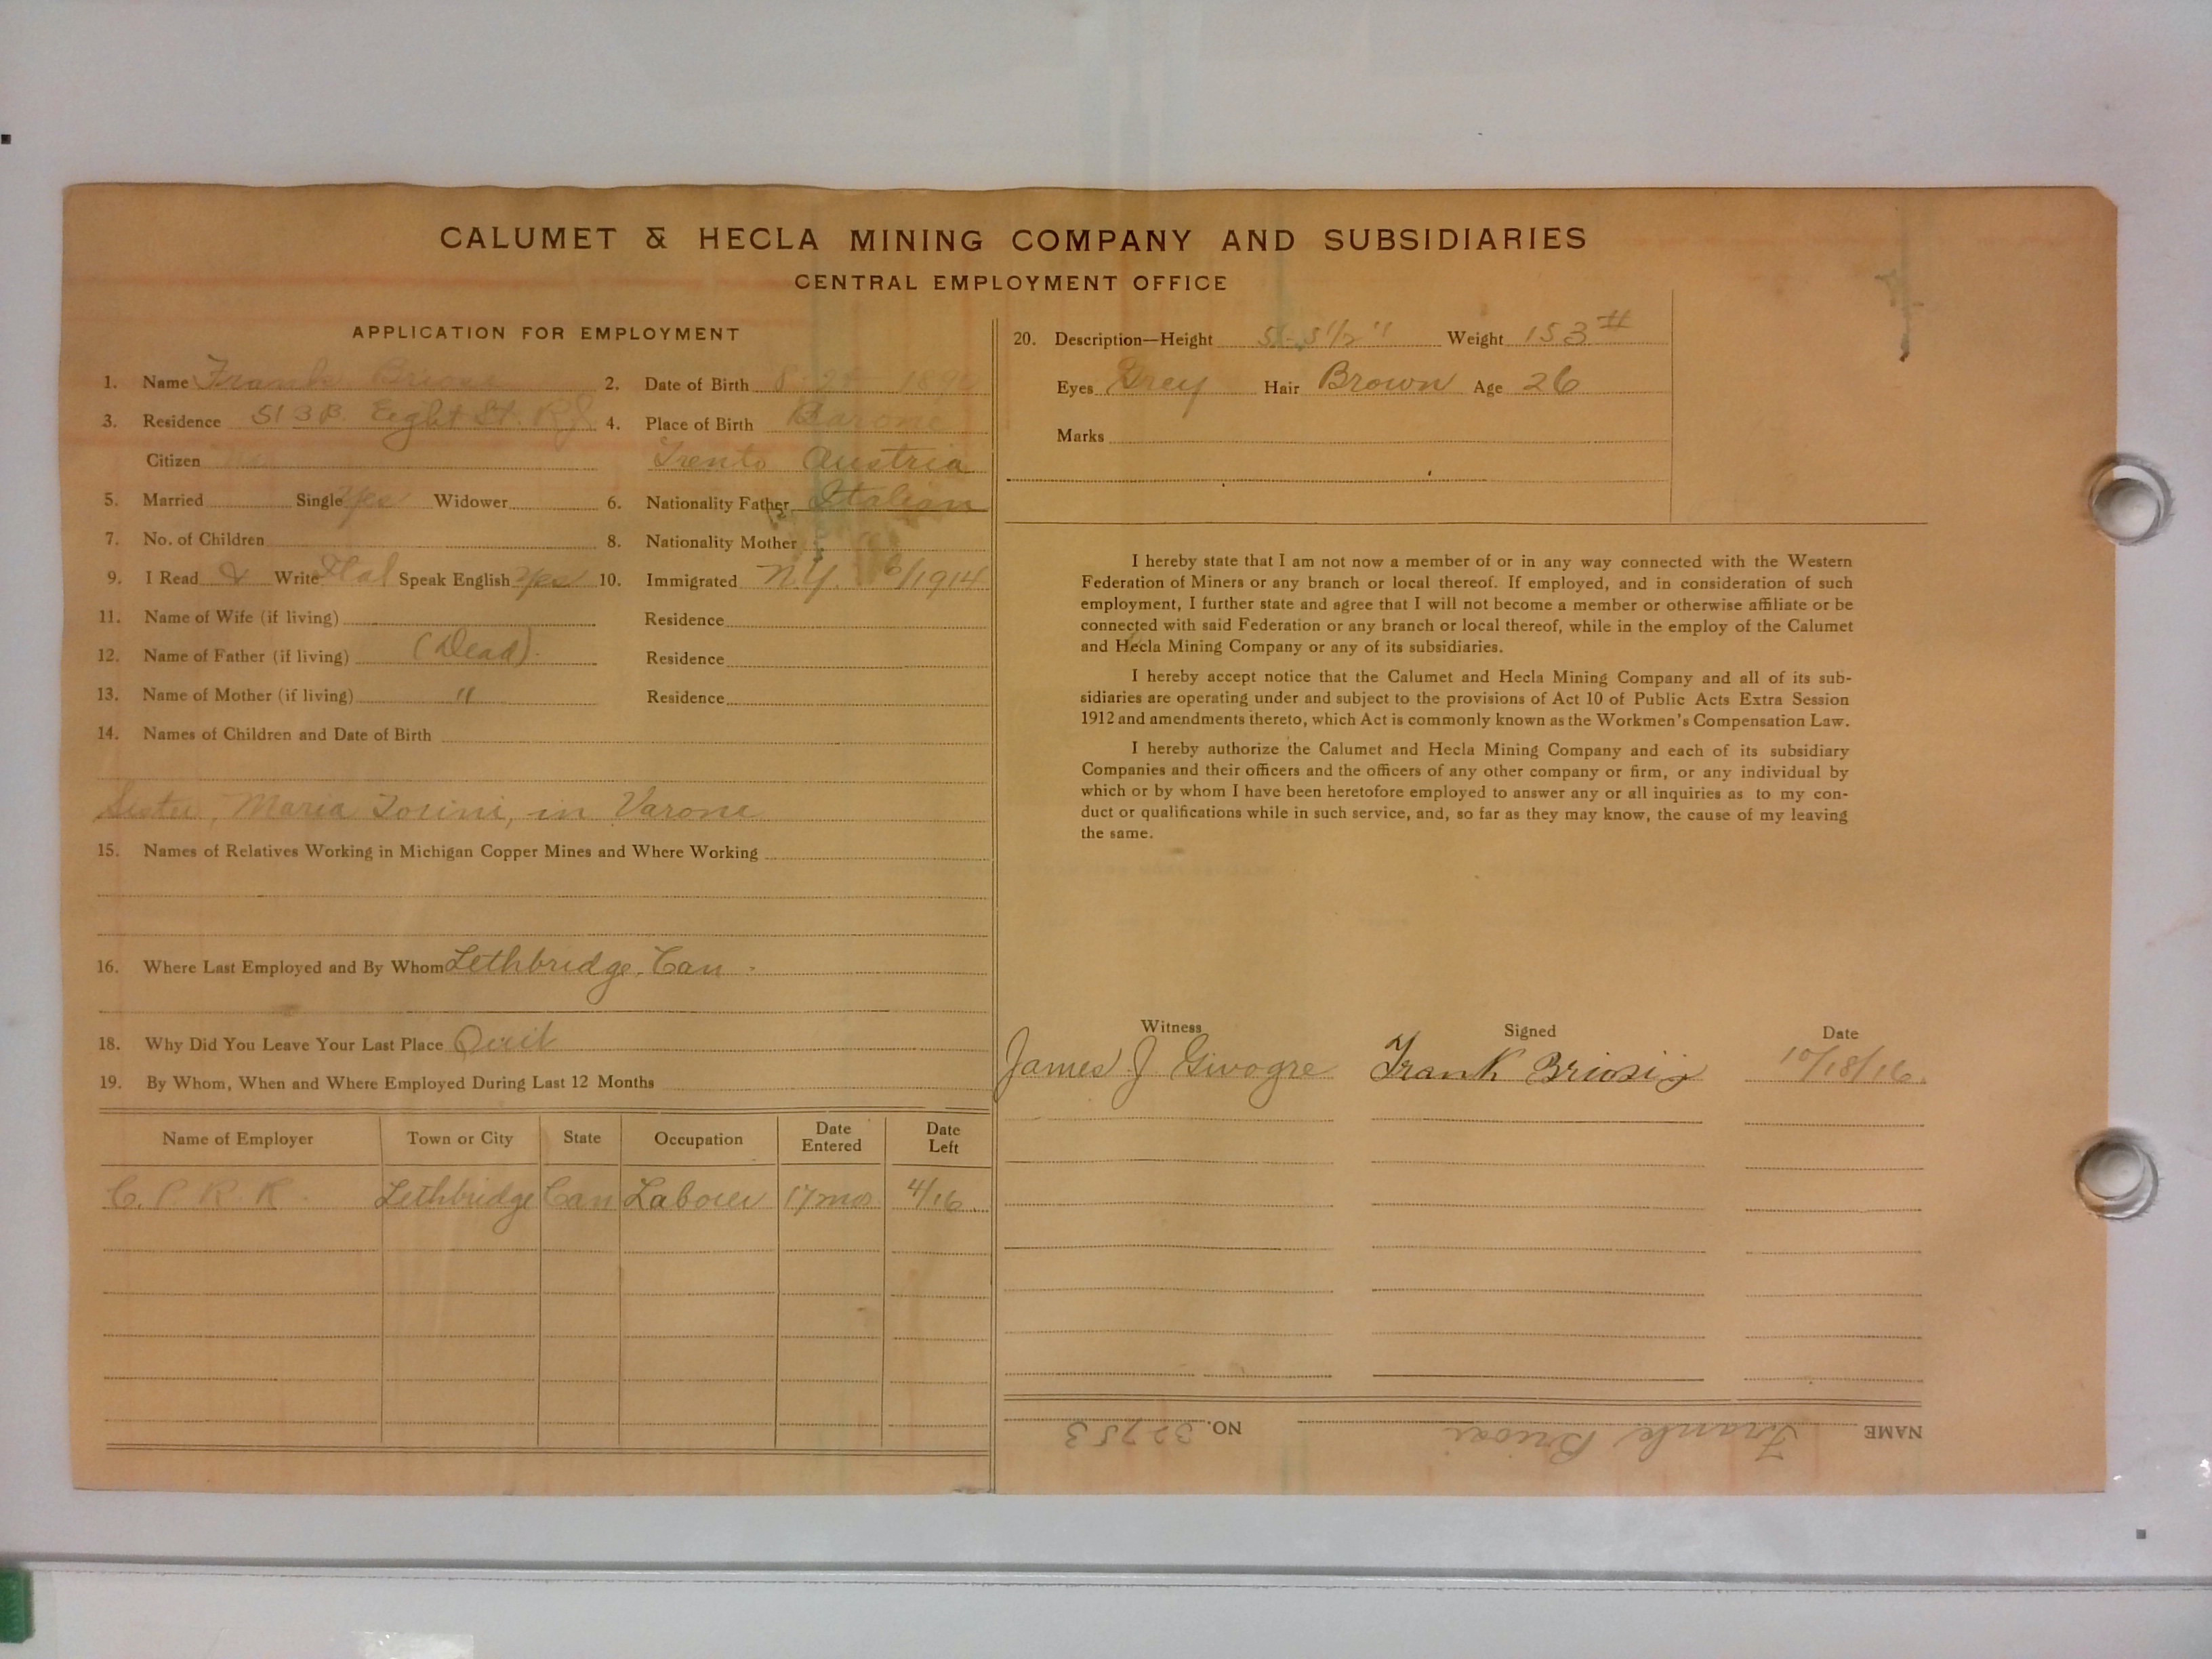 CALUMET & HECLA MINING COMPANY AND SUBSIDIARIES
CENTRAL EMPLOYMENT OFFICE
APPLICATION FOR EMPLOYMENT
1. Name Frank Briosi 2. Date of Birth 8-24 1890
3. Residence 513 B. Eight St. R.J. 4. Place of Birth Varone
Citizen Trento Austria
5. Married Single Yes Widower 6. Nationality Father Italian
7. No. of Children 8. Nationality Mother "
9. I Read & Write Ital Speak English Yes 10. Immigrated N.Y. 6/1914
11. Name of Wife (if living) Residence
12. Name of Father (if living) (Dead) Residence
13. Name of Mother (if living) " Residence
14. Names of Children and Date of Birth
Sister, Maria in Varone
15. Names of Relatives Working in Michigan Copper Mines and Where Working
16. Where Last Employed and By Whom Lethbridge, Can
18. Why Did You Leave Your Last Place Quit
19. By Whom, When and Where Employed During Last 12 Months
Name of Employer Town or City State Occupation Date Entered Date Left
C. P. R. R. Lethbridge Can Laborer 17 mos. 4/16.
20. Description—Height 5'-5 1/2" Weight 153#
Eyes Grey Hair Brown Age 26
Marks
I hereby state that I am not now a member of or in any way connected with the Western
Federation of Miners or any branch or local thereof. If employed, and in consideration of such
employment, I further state and agree that I will not become a member or otherwise affiliate or be
connected with said Federation or any branch or local thereof, while in the employ of the Calumet
and Hecla Mining Company or any of its subsidiaries.
I hereby accept notice that the Calumet and Hecla Mining Company and all of its sub-
sidiaries are operating under and subject to the provisions of Act 10 of Public Acts Extra Session
1912 and amendments thereto, which Act is commonly known as the Workmen's Compensation Law.
I hereby authorize the Calumet and Hecla Mining Company and each of its subsidiary
Companies and their officers and the officers of any other company or firm, or any individual by
which or by whom I have been heretofore employed to answer any or all inquiries as to my con-
duct or qualifications while in such service, and, so far as they may know, the cause of my leaving
the same.
Witness Signed Date
James J Givogre Frank Briosi 10/18/16.
NAME Frank Briosi NO. 32753